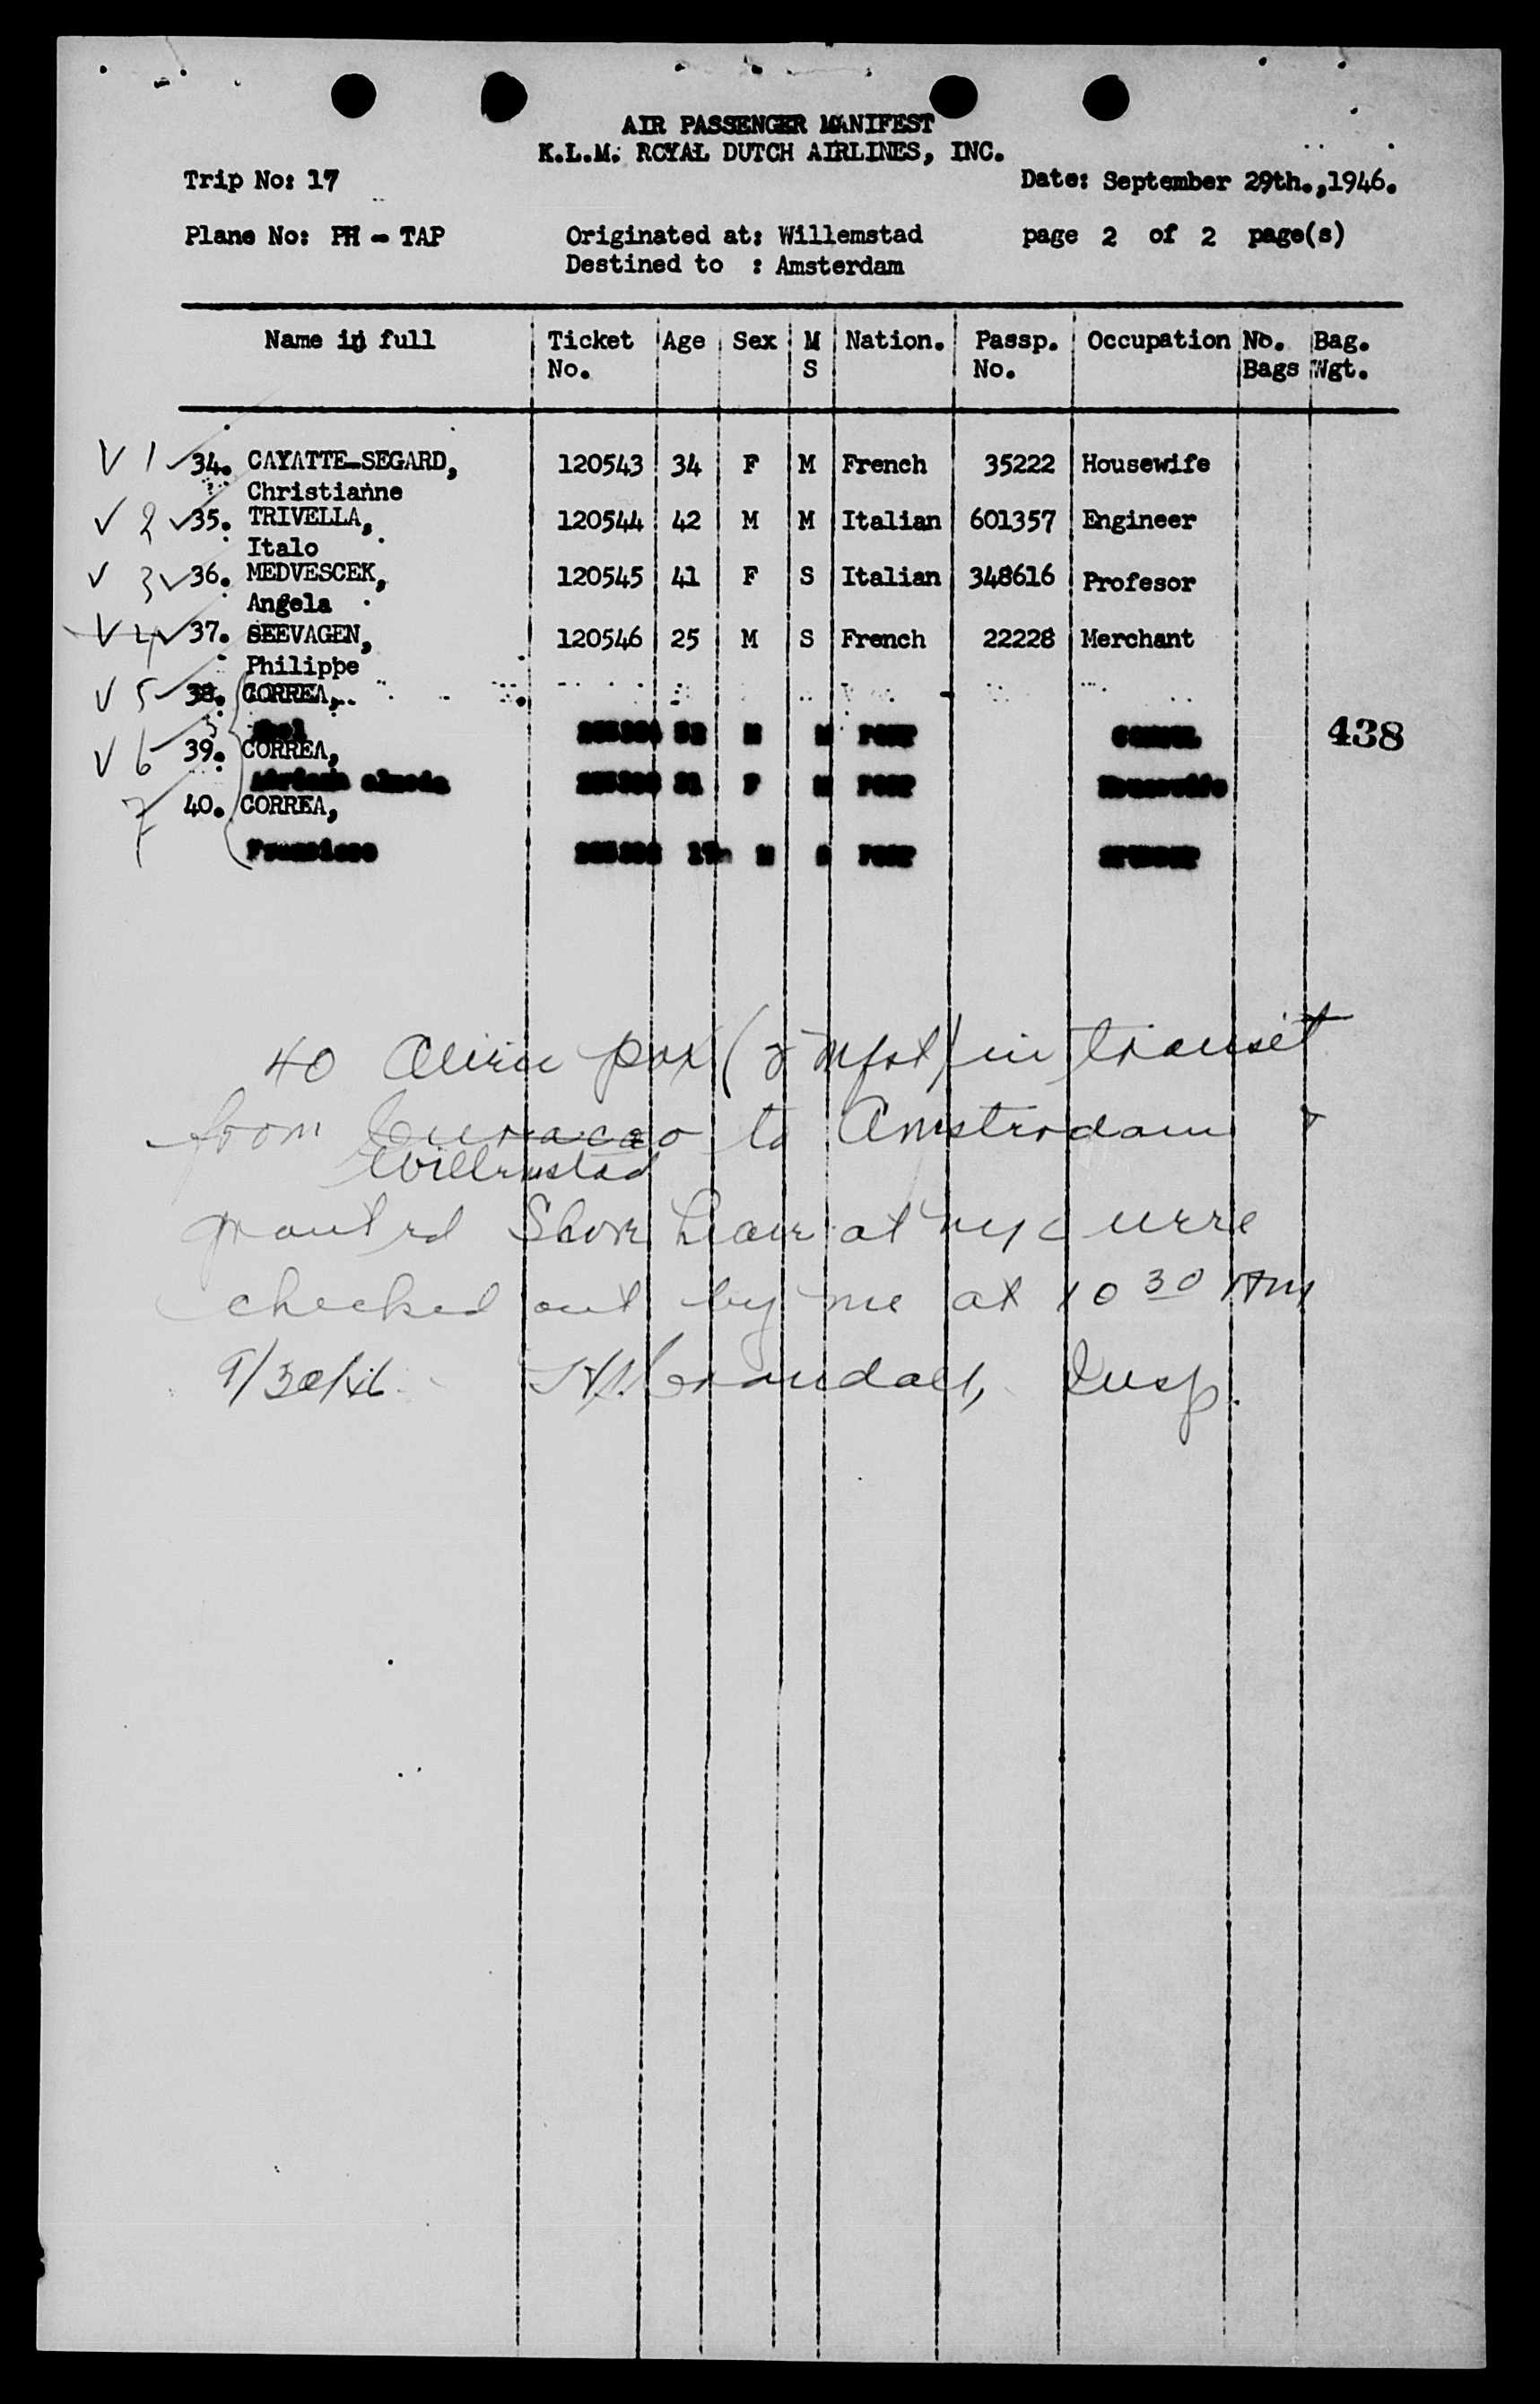 AIR PASSENGER MANIFEST
K.L.M. ROYAL DUTCH AIRLINES, INC.
Trip No: 17 Date: September 29th.,1946.
Plane No: PH - TAP Originated at: Willemstad page 2 of 2 page(s)
Destined to : Amsterdam
Name in full Ticket Age Sex M Nation. Passp. Occupation No. Bag.
No. S No. Bags Wgt.
V 1 34. CAYATTE-SEGARD, 120543 34 F M French 35222 Housewife
Christianne
V 2 35. TRIVELLA, 120544 42 M M Italian 601357 Engineer
Italo
V 3 36. MEDVESCEK, 120545 41 F S Italian 348616 Profesor
Angela
V 4 37. SEEVAGEN, 120546 25 M S French 22228 Merchant
Philippe
V 5 38. CORREA,
M M 438
V 6 39. CORREA,
F M Housewife
7 40. CORREA,
M
40 alien pax (2 mfst) in transit
from Curacao to Amstrodam &
Willemstad
granted Shore Leave at nyc were
checked out by me at 10 30 AM
9/30/46 Crandall, Insp.